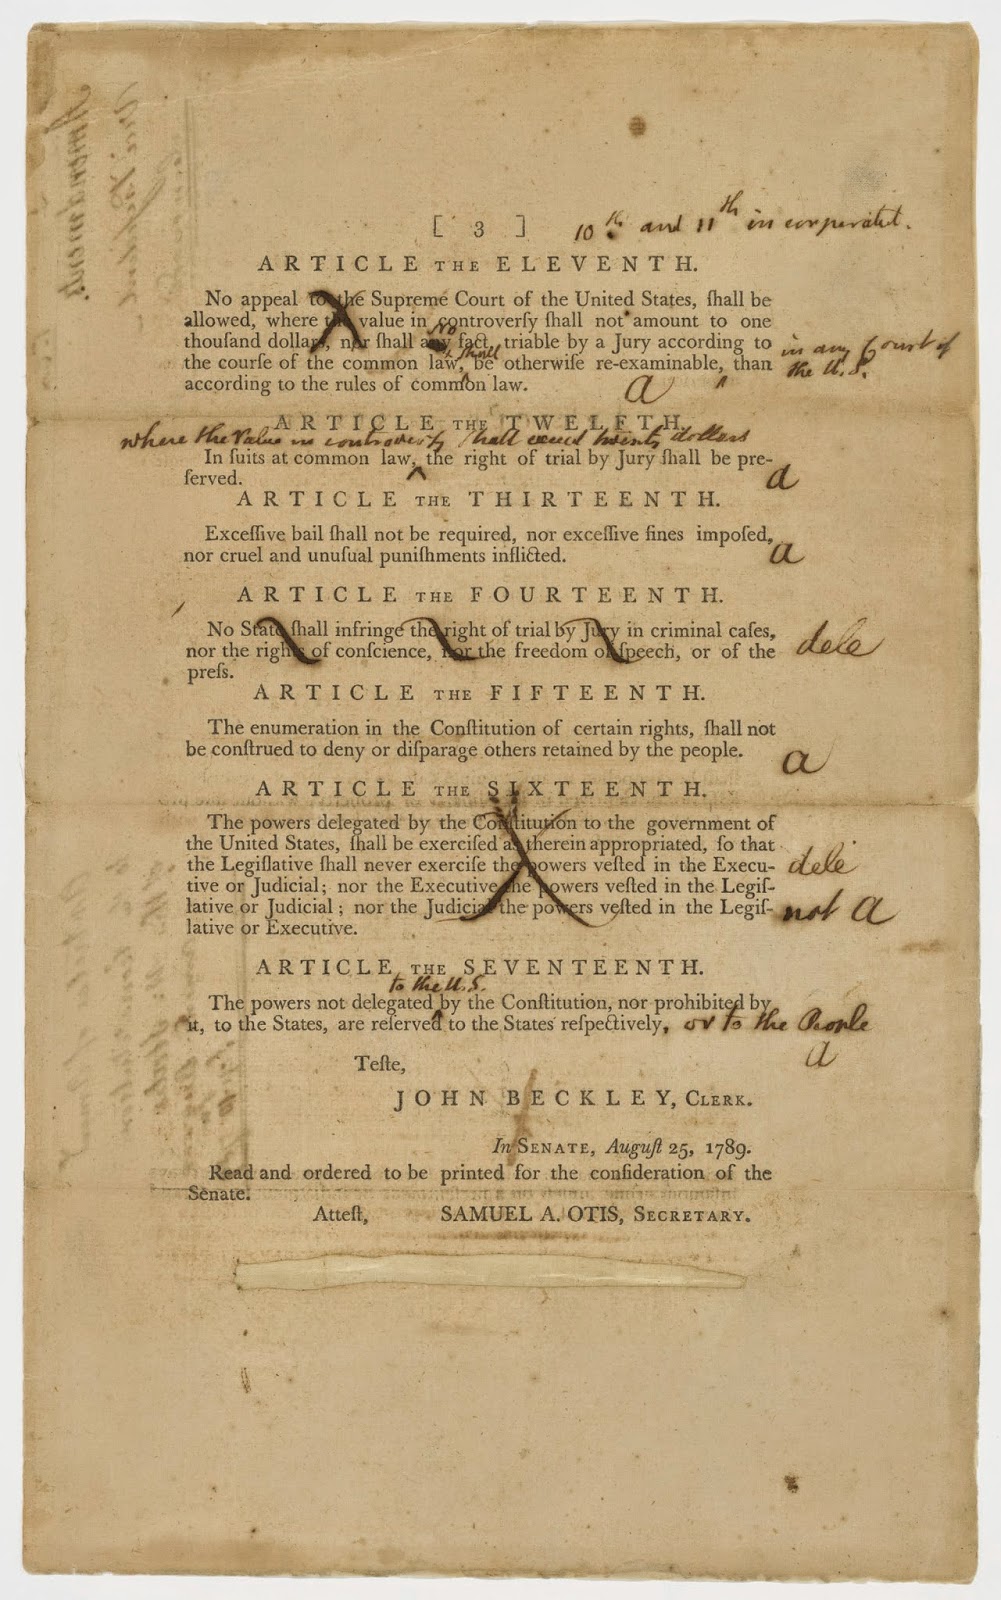 [ 3 ] 10th and 11th in corperated.
ARTICLE THE ELEVENTH.
No appeal to the Supreme Court of the United States, ſhall be
allowed, where the value in controverſy ſhall not amount to one
No
thouſand dollars, nor ſhall any fact, triable by a Jury according to in any Court of
shall
the courſe of the common law, be otherwiſe re-examinable, than the U.S.
according to the rules of common law. a
ARTICLE THE TWELFTH.
where the Value in controversy shall exceed twenty dollars
In ſuits at common law, the right of trial by Jury ſhall be pre-
ſerved. a
ARTICLE THE THIRTEENTH.
Exceſſive bail ſhall not be required, nor exceſſive fines impoſed,
nor cruel and unuſual puniſhments inflicted. a
ARTICLE THE FOURTEENTH.
No State ſhall infringe the right of trial by Jury in criminal caſes,
nor the rights of conſcience, nor the freedom of ſpeech, or of the dele
preſs.
ARTICLE THE FIFTEENTH.
The enumeration in the Conſtitution of certain rights, ſhall not
be conſtrued to deny or diſparage others retained by the people. a
ARTICLE THE SIXTEENTH.
The powers delegated by the Conſtitution to the government of
the United States, ſhall be exerciſed as therein appropriated, ſo that
the Legiſlative ſhall never exerciſe the powers veſted in the Execu- dele
tive or Judicial; nor the Executive the powers veſted in the Legiſ-
lative or Judicial; nor the Judicial the powers veſted in the Legiſ- not a
lative or Executive.
ARTICLE THE SEVENTEENTH.
to the U.S.
The powers not delegated by the Conſtitution, nor prohibited by
it, to the States, are reſerved to the States reſpectively, or to the People
a
Teſte,
JOHN BECKLEY, CLERK.
In SENATE, Auguſt 25, 1789.
Read and ordered to be printed for the conſideration of the
Senate.
Atteſt, SAMUEL A. OTIS, SECRETARY.